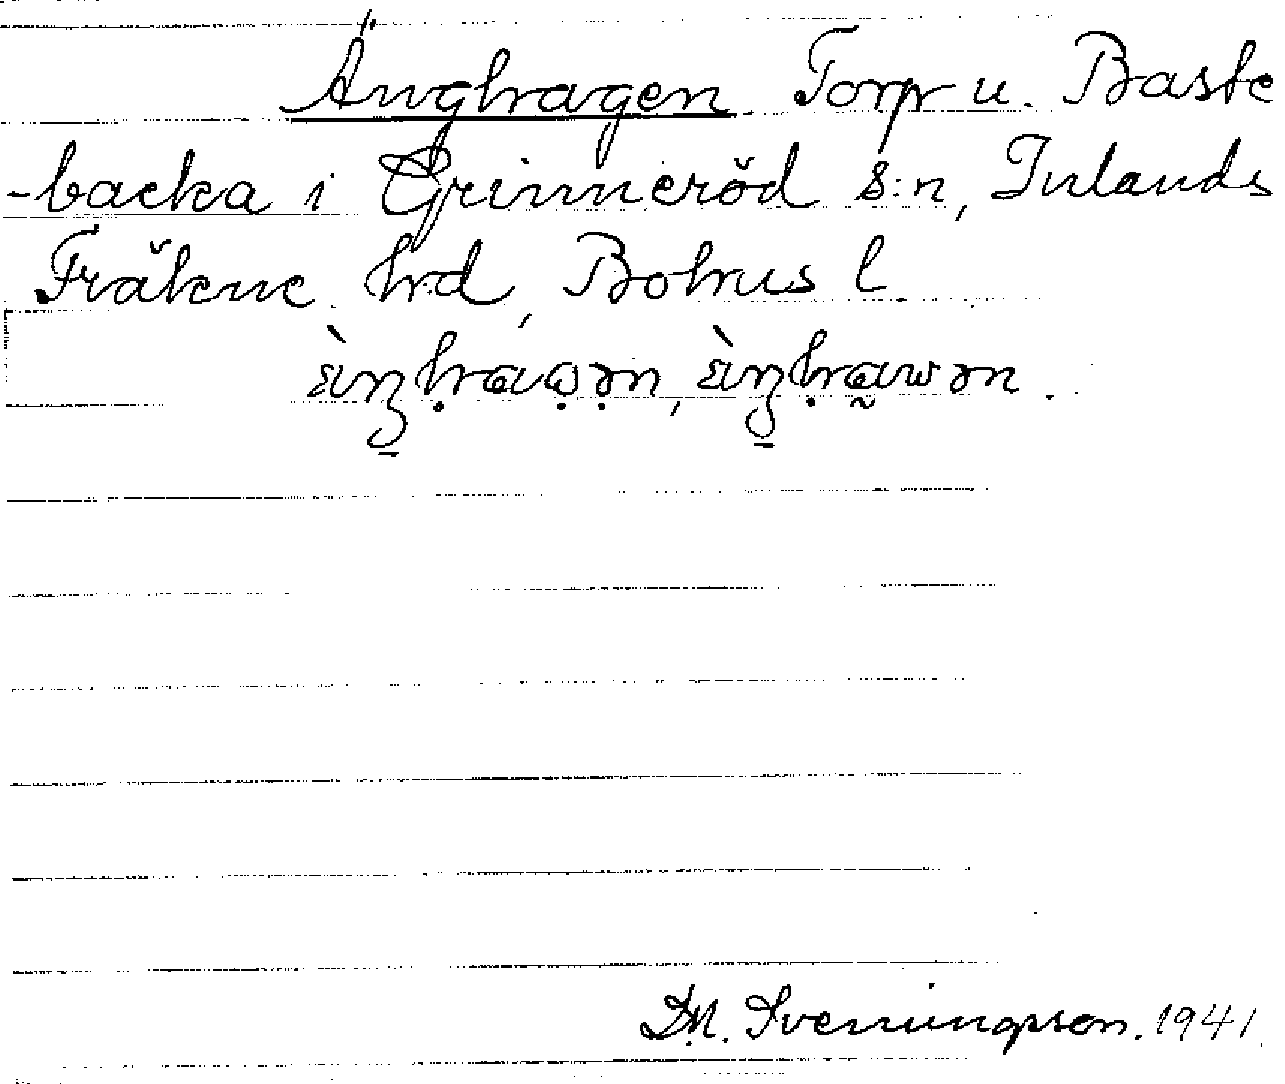 Änghagen Torp u. Baste
-backa i Grinneröd s:n, Inlands
Fräkne hd, Bohus l
Svenningsson. 1941